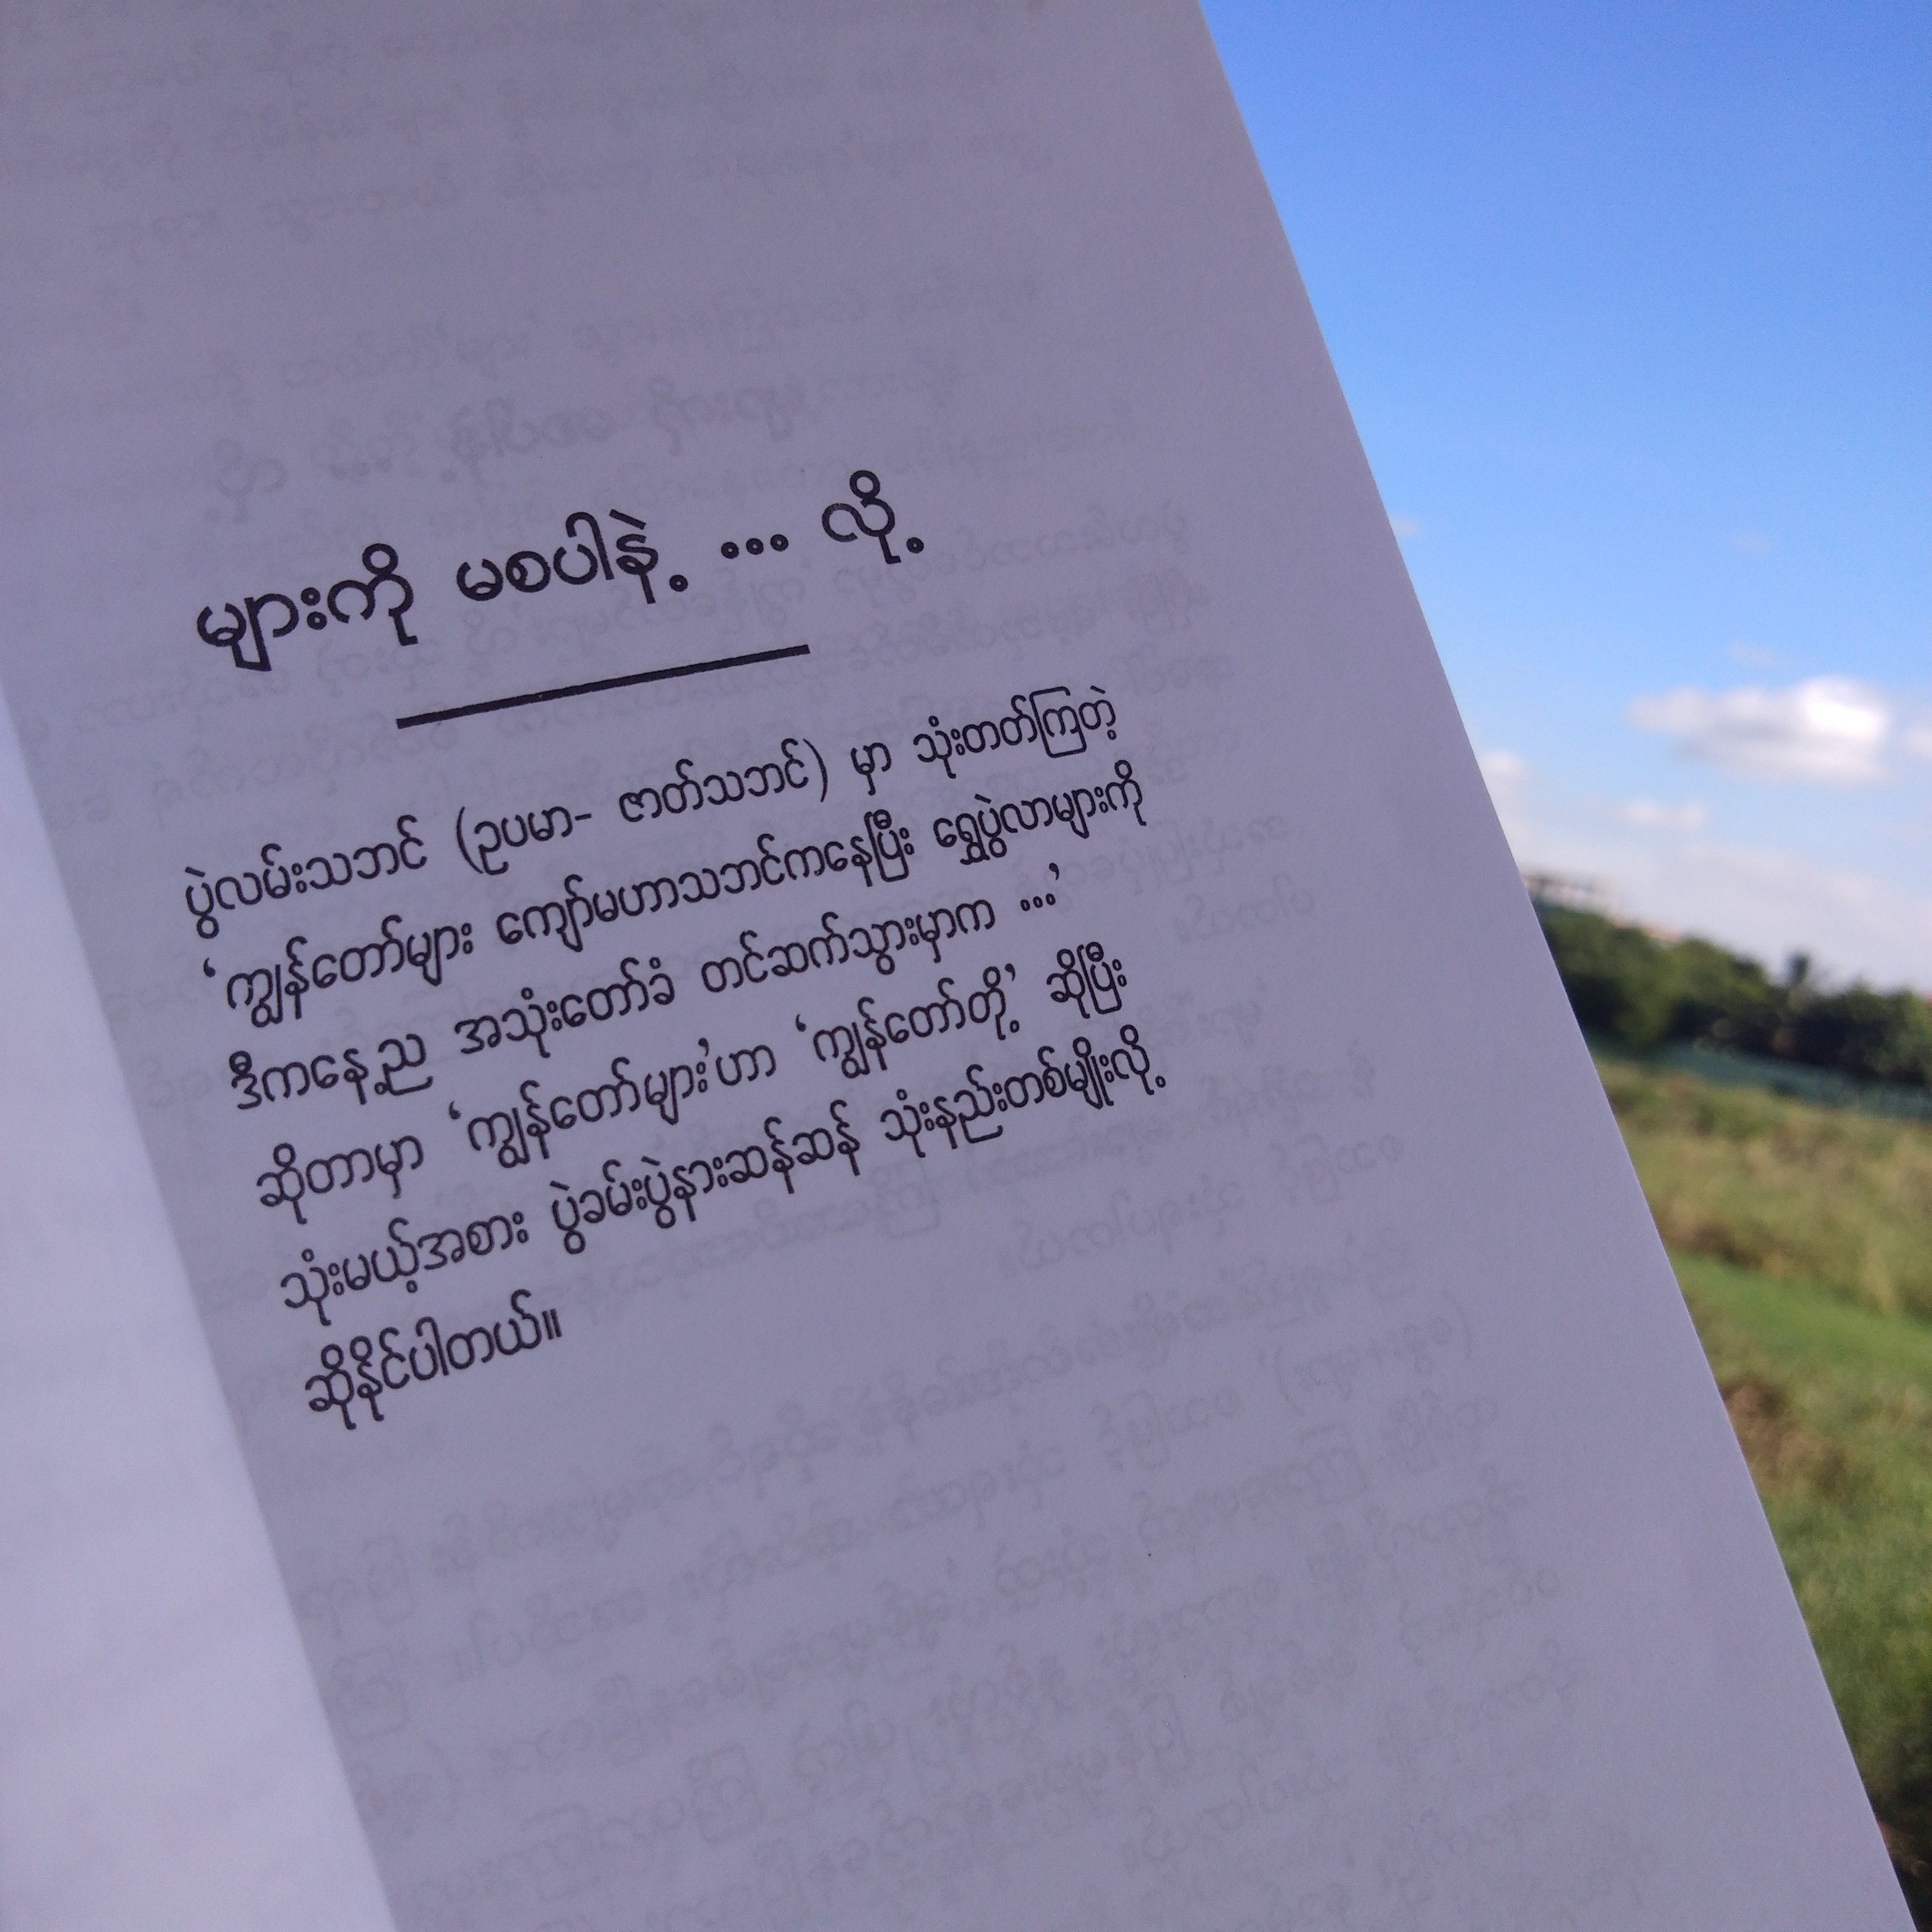 များကို မစပါနဲ့ ... လို့
ပွဲလမ်းသဘင် (ဥပမာ- ဇာတ်သဘင်) မှာ သုံးတတ်ကြတဲ့
‘ကျွန်တော်များ ကျော်မဟာသဘင်ကနေပြီး ရွှေပွဲလာများကို
ဒီကနေ့ည အသုံးတော်ခံ တင်ဆက်သွားမှာက ...’
ဆိုတာမှာ ‘ကျွန်တော်များ’ဟာ ‘ကျွန်တော်တို့’ ဆိုပြီး
သုံးမယ့်အစား ပွဲခမ်းပွဲနားဆန်ဆန် သုံးနည်းတစ်မျိုးလို့
ဆိုနိုင်ပါတယ်။